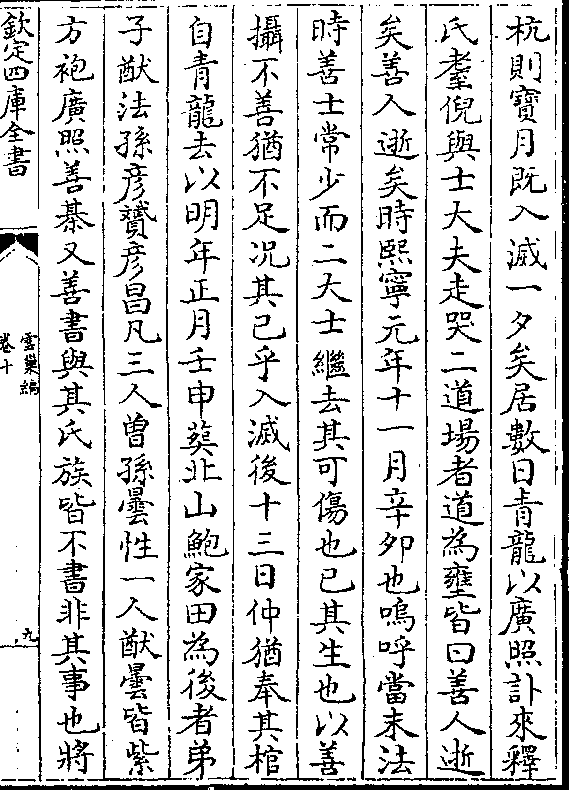 杭則寳月既入滅一夕矣居數日青龍以廣照訃來釋
氏耋倪與士大夫走哭二道場者道為壅皆曰善人逝
矣善人逝矣時熙寧元年十一月辛卯也嗚呼當末法
時善士常少而二大士繼去其可傷也已其生也以善
攝不善猶不足况其已乎入滅後十三日仲猶奉其棺
自青龍去以明年正月壬申葬北山鮑家田為後者弟
子猷法孫彦贇彦昌凡三人曽孫曇性一人猷曇皆紫
方袍廣照善棊又善書與其氏族皆不書非其事也將
欽定四庫全書
雲巢編
卷十
九